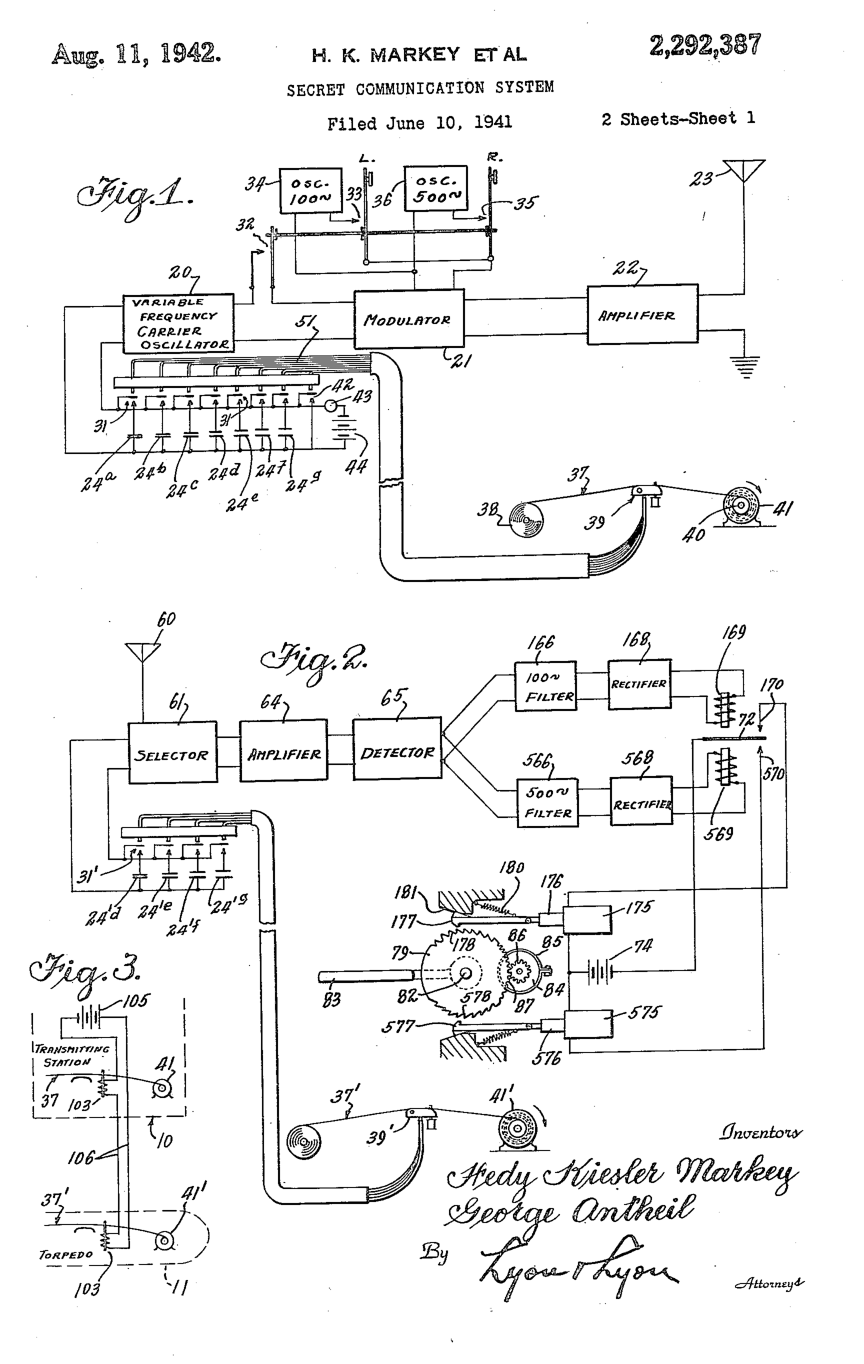 Aug. 11, 1942.
H. K. MARKEY ET AL
2,292,387
SECRET COMMUNICATION SYSTEM
Filed June 10, 1941
2 Sheets-Sheet 1
Fig.1.
34
OSC.
100~
L.
33
36
OSC.
500~
R.
35
23
32
20
VARIABLE
FREQUENCY
CARRIER
OSCILLATOR
51
MODULATOR
21
22
AMPLIFIER
42
43
31
31
44
24a
24b
24c
24d
24e
24f
24g
37
38
39
40
41
60
Fig.2.
61
SELECTOR
64
AMPLIFIER
65
DETECTOR
166
100~
FILTER
168
RECTIFIER
169
170
72
566
500~
FILTER
568
RECTIFIER
569
570
31'
24'd
24'e
24'f
24'g
181
180
176
177
175
178
86
85
79
74
83
82
578
87
84
577
576
575
Fig.3.
105
TRANSMITTING
STATION
41
37
103
10
106
37'
41'
TORPEDO
103
11
37'
39'
41'
Inventors
Hedy Kiesler Markey
George Antheil
By
Lyon & Lyon
Attorneys